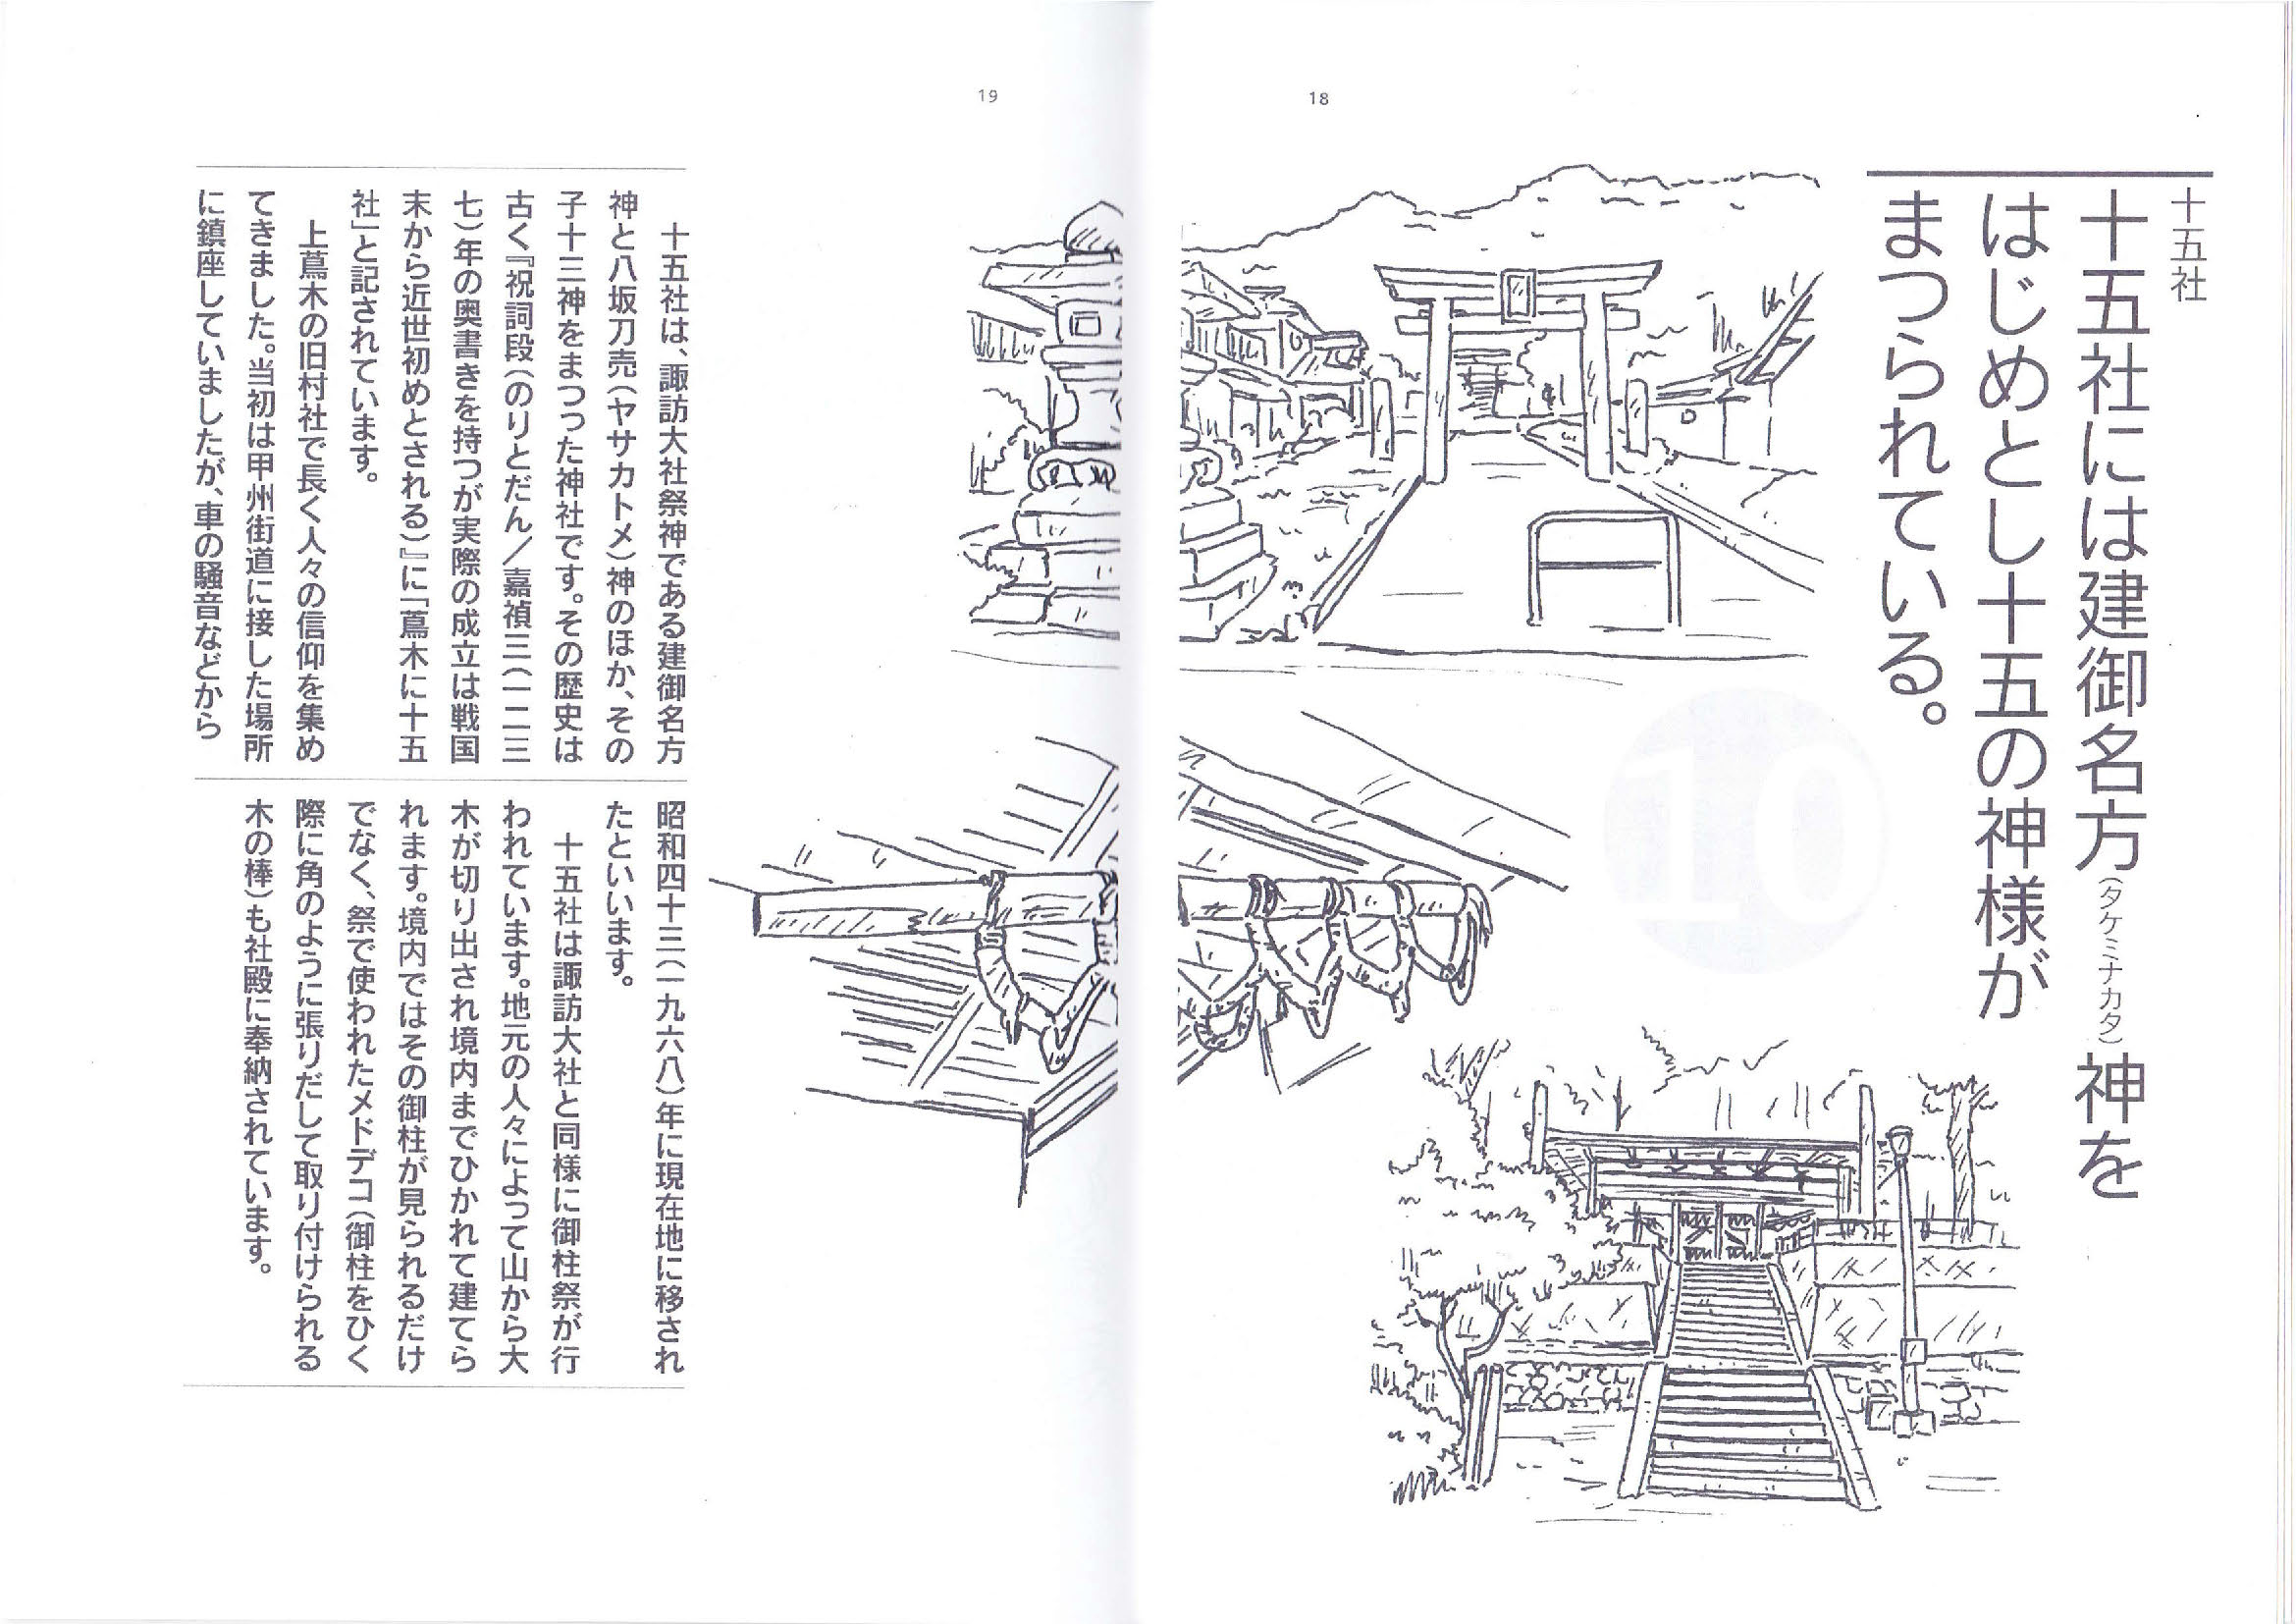 18
十五社
十五社には建御名方（タケミナカタ）神を
はじめとし十五の神様が
まつられている。
19
十五社は、諏訪大社祭神である建御名方
神と八坂刀売（ヤサカトメ）神のほか、その
子十三神をまつった神社です。その歴史は
古く『祝詞段（のりとだん／嘉禎三（一二三
七）年の奥書きを持つが実際の成立は戦国
末から近世初めとされる）』に「蔦木に十五
社」と記されています。
上蔦木の旧村社で長く人々の信仰を集め
てきました。当初は甲州街道に接した場所
に鎮座していましたが、車の騒音などから
昭和四十三（一九六八）年に現在地に移され
たといいます。
十五社は諏訪大社と同様に御柱祭が行
われています。地元の人々によって山から大
木が切り出され境内までひかれて建てら
れます。境内ではその御柱が見られるだけ
でなく、祭で使われたメドデコ（御柱をひく
際に角のように張りだして取り付けられる
木の棒）も社殿に奉納されています。